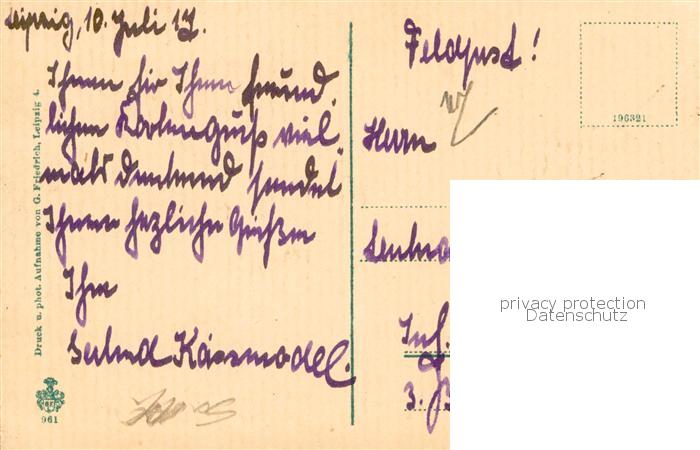 Leipzig, 10. Juli 17.
Ihnen für Ihren freund
lichen Kartengruß viel
mals dankend sendet
Ihnen herzliche Grüße
Ihr
Kässmodel.
Feldpost!
Herrn
Inf.
3.
196321
Druck u. phot. Aufnahme von G. Friedrich, Leipzig 4.
961
privacy protection
Datenschutz